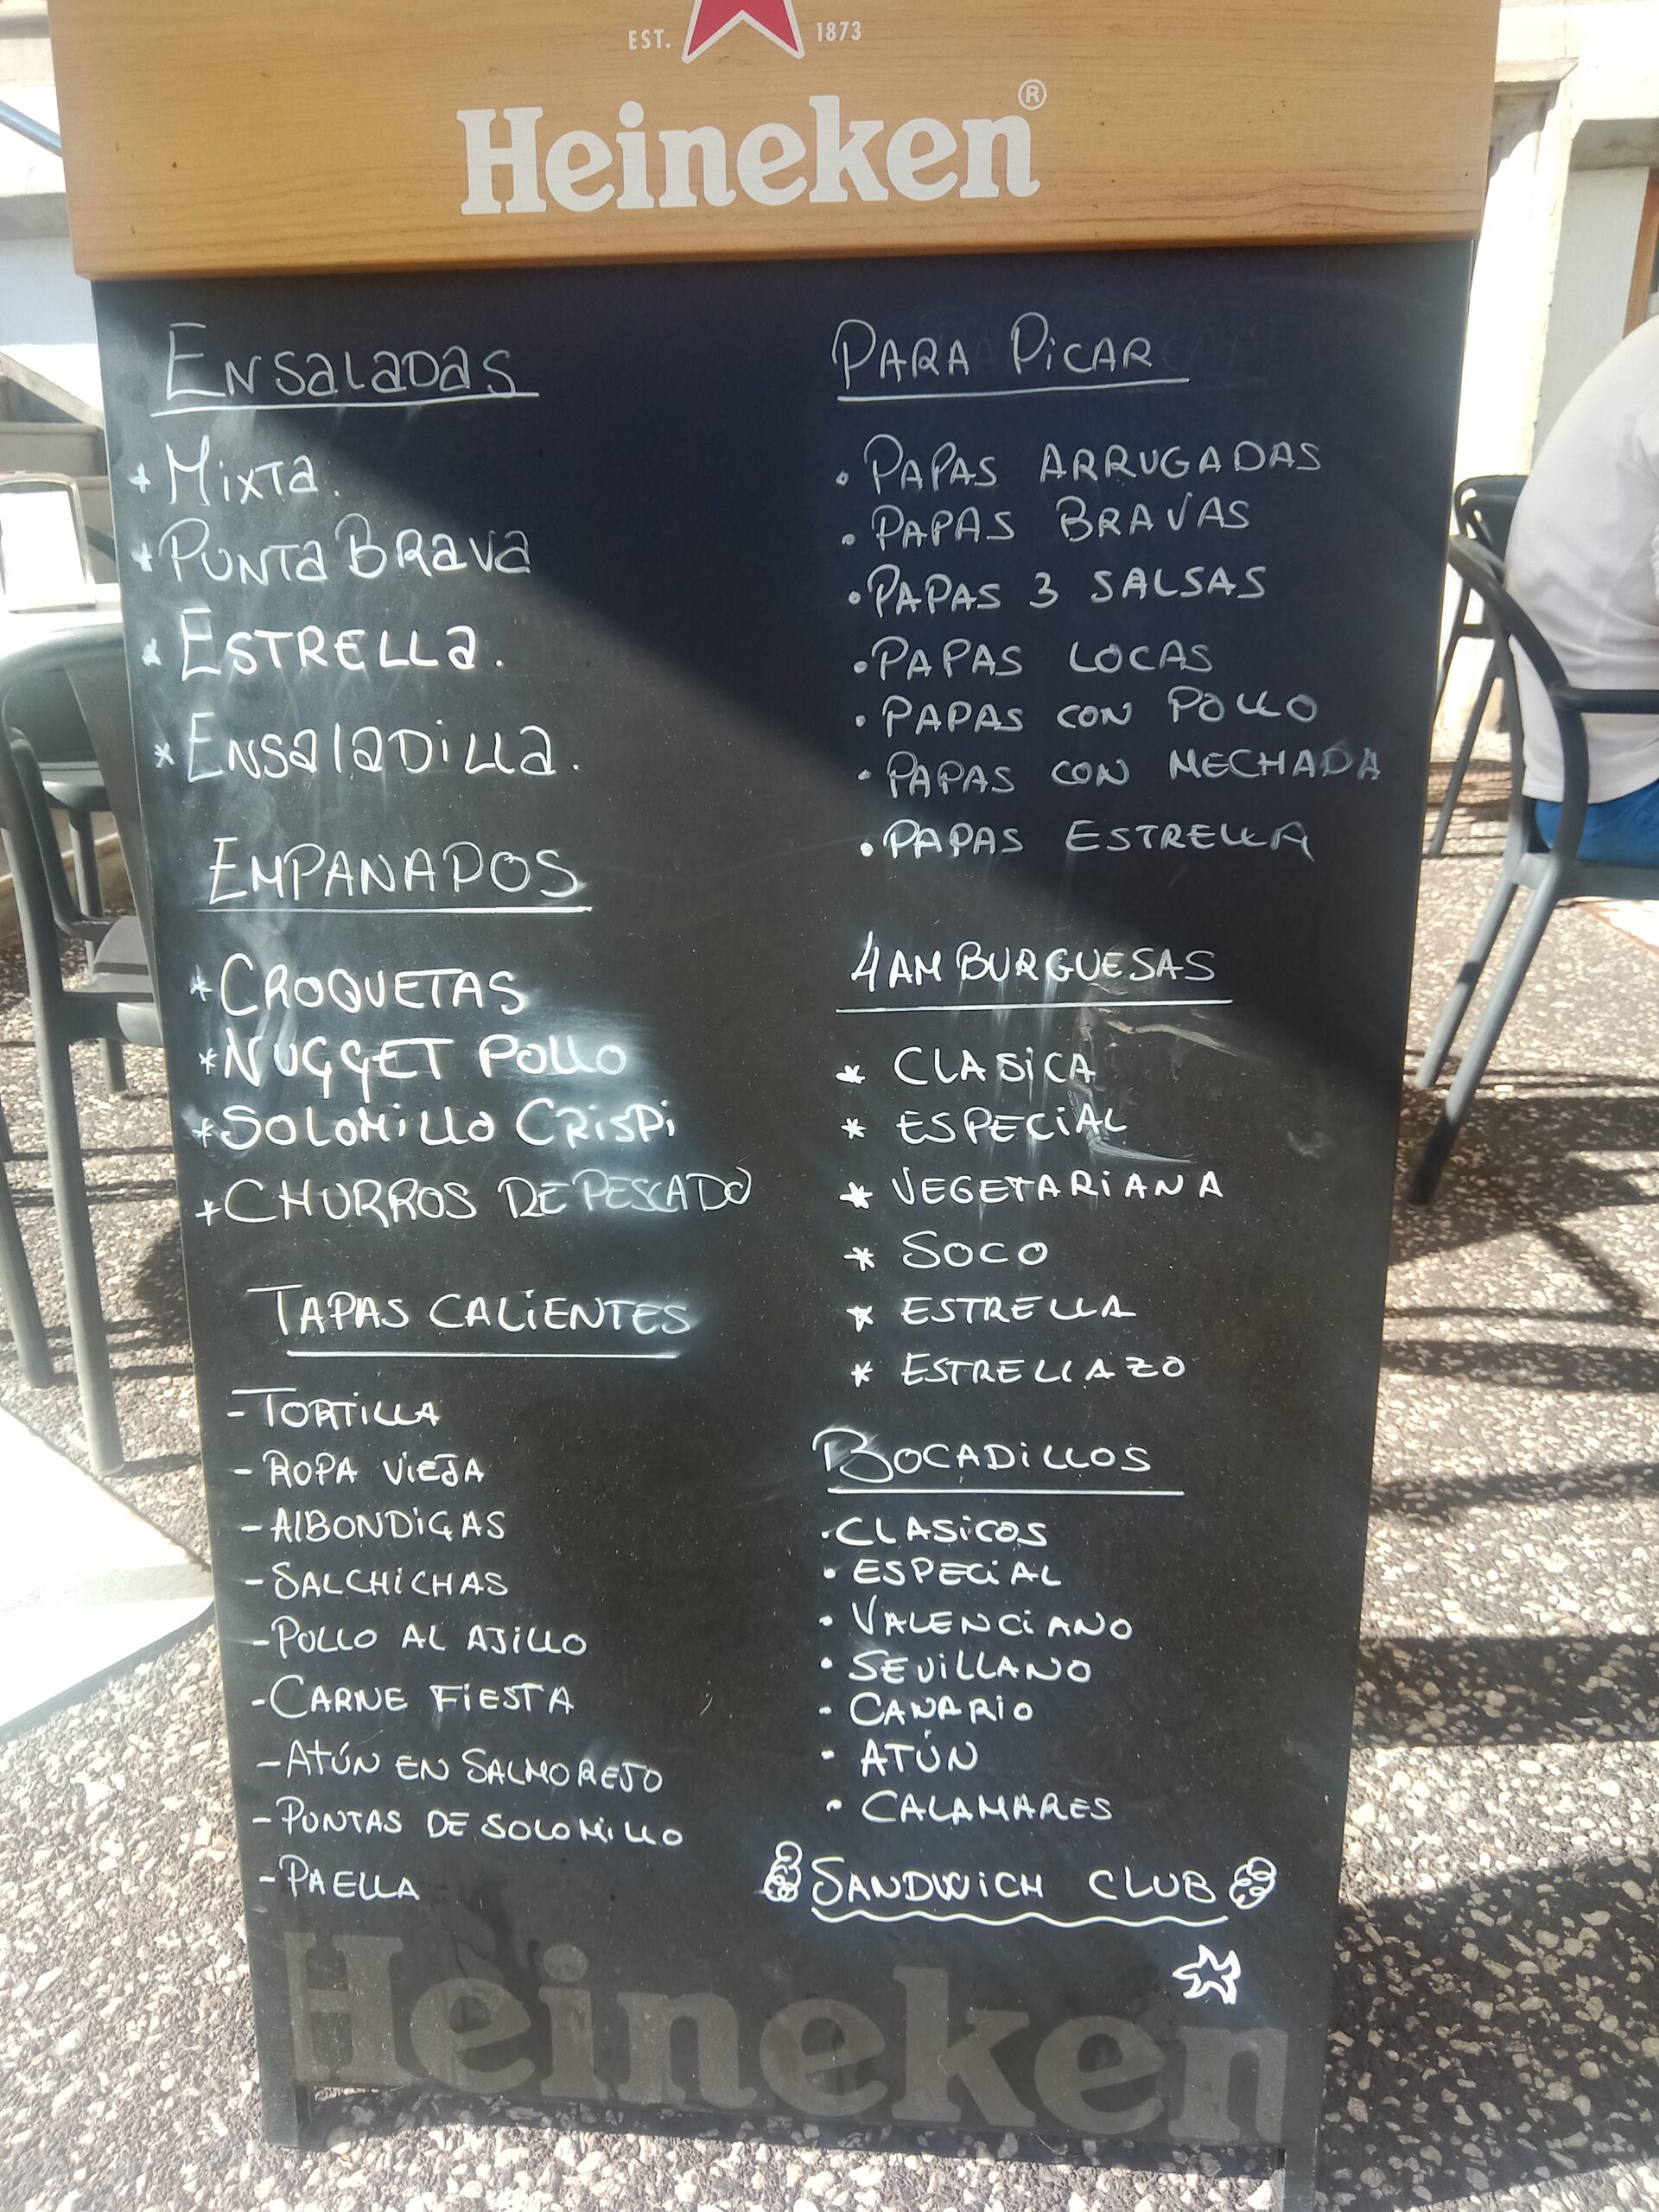 EST. 1873
Heineken®
ENSALADAS
* MIXTA.
* PUNTA BRAVA
* ESTRELLA.
* ENSALADILLA.
EMPANADOS
* CROQUETAS
* NUGGET POLLO
* SOLOMILLO CRISPI
* CHURROS DE PESCADO
TAPAS CALIENTES
- TORTILLA
- ROPA VIEJA
- ALBONDIGAS
- SALCHICHAS
- POLLO AL AJILLO
- CARNE FIESTA
- ATÚN EN SALMOREJO
- PUNTAS DE SOLOMILLO
- PAELLA
PARA PICAR
• PAPAS ARRUGADAS
• PAPAS BRAVAS
• PAPAS 3 SALSAS
• PAPAS LOCAS
• PAPAS CON POLLO
• PAPAS CON MECHADA
• PAPAS ESTRELLA
HAMBURGUESAS
* CLASICA
* ESPECIAL
* VEGETARIANA
* SOCO
* ESTRELLA
* ESTRELLAZO
BOCADILLOS
• CLASICOS
• ESPECIAL
• VALENCIANO
• SEVILLANO
• CANARIO
• ATÚN
• CALAMARES
SANDWICH CLUB
Heineken